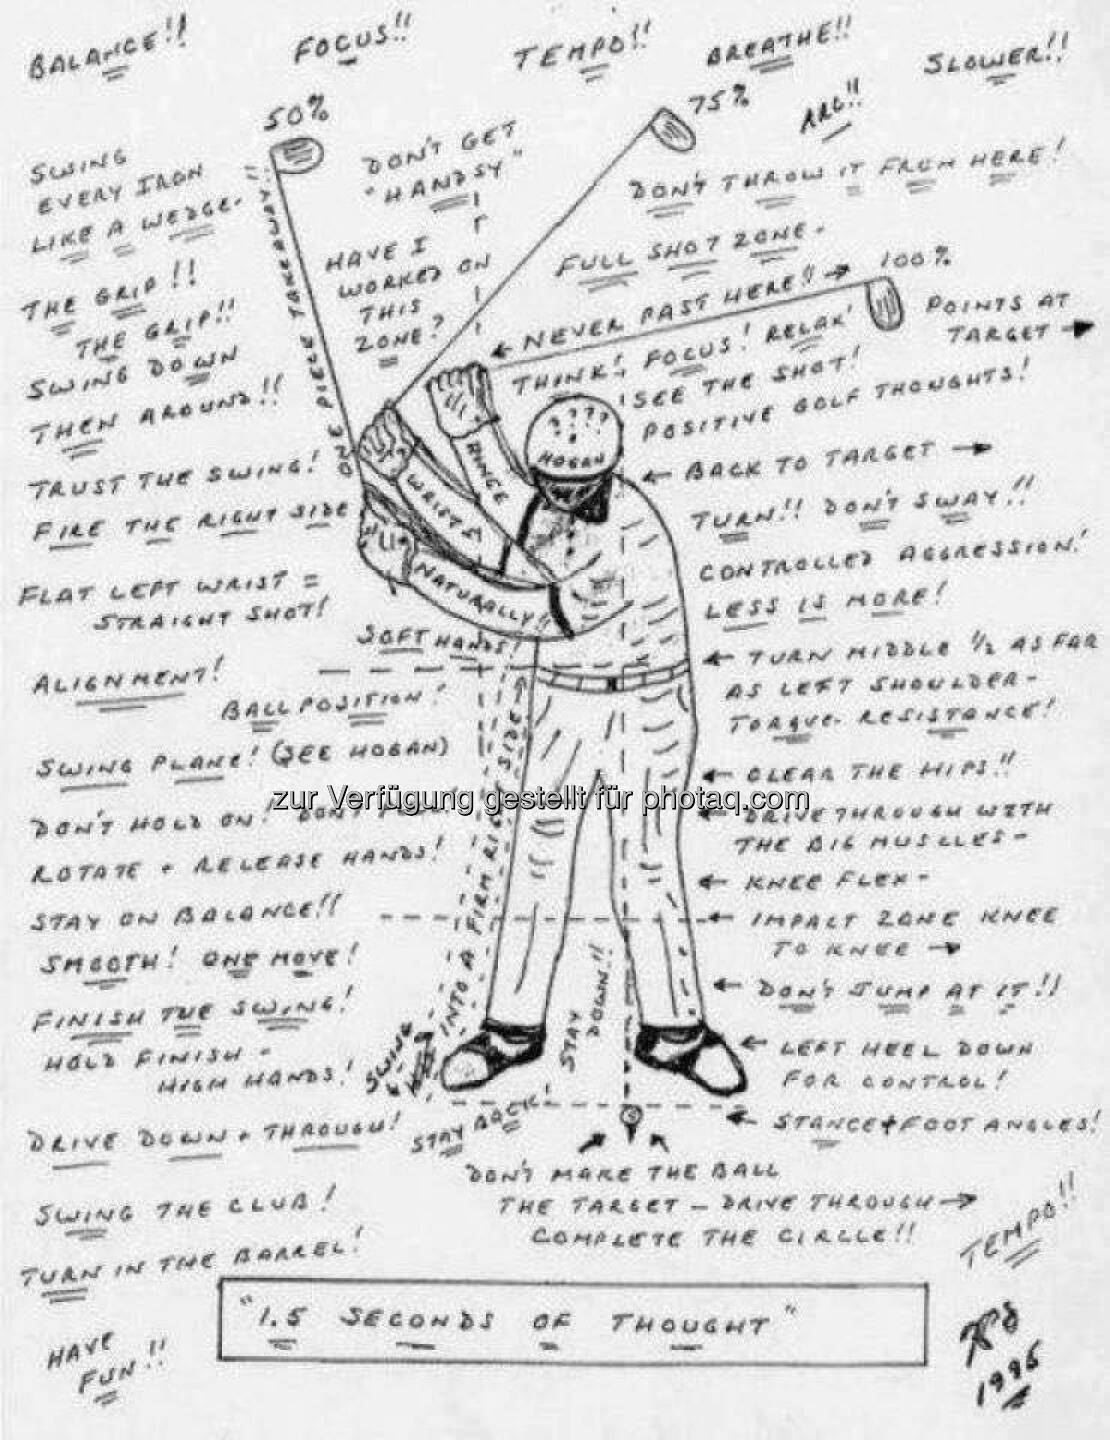 BALANCE!!
FOCUS!!
TEMPO!!
BREATHE!!
SLOWER!!
50%
75%
ARC!!
SWING
EVERY IRON
LIKE A WEDGE-
DON'T GET
"HANDSY"
DON'T THROW IT FROM HERE!
ONE PIECE TAKEAWAY!!
HAVE I
WORKED ON
THIS
ZONE?
FULL SHOT ZONE-
100%
NEVER PAST HERE!!
POINTS AT
TARGET
THE GRIP!!
THE GRIP!!
SWING DOWN
THEN AROUND!!
THINK! FOCUS! RELAX!
SEE THE SHOT!
POSITIVE GOLF THOUGHTS!
????
HOGAN
HINGE
WRISTS
NATURALLY!!
TRUST THE SWING!
FIRE THE RIGHT SIDE
BACK TO TARGET
TURN!! DON'T SWAY!!
CONTROLLED AGGRESSION!
LESS IS MORE!
FLAT LEFT WRIST =
STRAIGHT SHOT!
SOFT HANDS!
ALIGNMENT!
BALL POSITION!
TURN MIDDLE 1/2 AS FAR
AS LEFT SHOULDER-
TORQUE- RESISTANCE!
SWING PLANE! (SEE HOGAN)
CLEAR THE HIPS!!
zur Verfügung gestellt für photaq.com
DON'T HOLD ON! DON'T
DRIVE THROUGH WITH
THE BIG MUSCLES-
ROTATE + RELEASE HANDS!
KNEE FLEX-
STAY ON BALANCE!!
IMPACT ZONE KNEE
TO KNEE
SMOOTH! ONE MOVE!
DON'T JUMP AT IT!!
FINISH THE SWING!
HOLD FINISH -
HIGH HANDS!
SWING
INTO A FIRM RIGHT SIDE
STAY
DOWN!!
LEFT HEEL DOWN
FOR CONTROL!
DRIVE DOWN + THROUGH!
STAY BACK!
STANCE + FOOT ANGLES!
DON'T MAKE THE BALL
THE TARGET - DRIVE THROUGH
COMPLETE THE CIRCLE!!
SWING THE CLUB!
TURN IN THE BARREL!
TEMPO!!
"1.5 SECONDS OF THOUGHT"
HAVE
FUN!!
1996